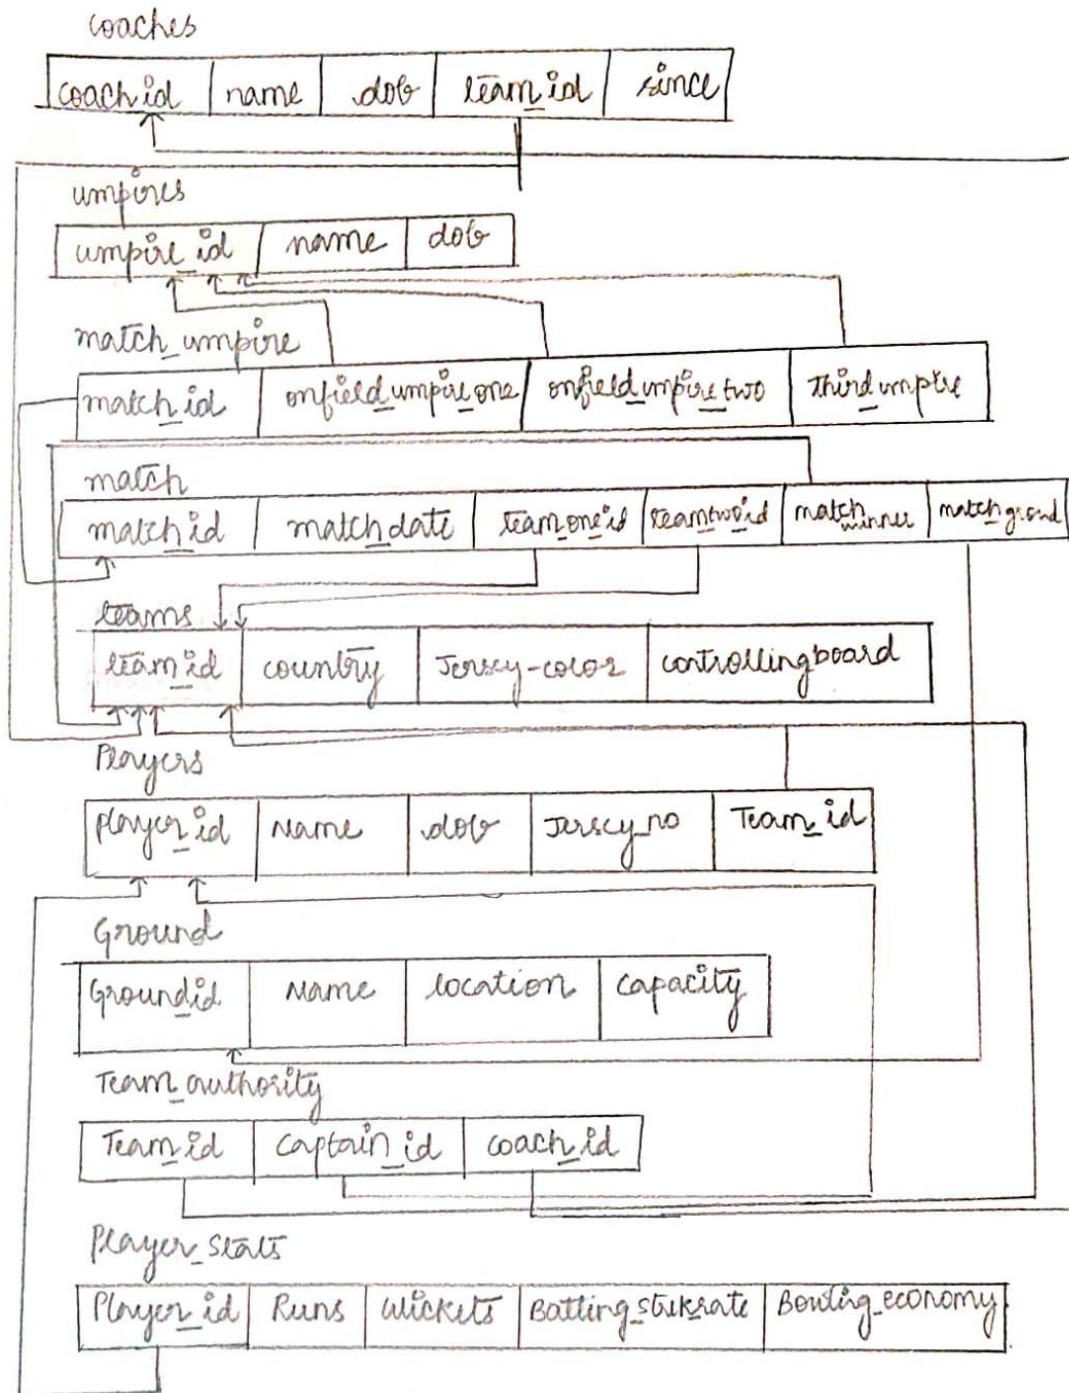 coaches
coach_id name dob team_id since
umpires
umpire_id name dob
match_umpire
match_id onfield_umpire_one onfield_umpire_two third_umpire
match
match_id match_date team_one_id team_two_id match_winner match_ground
teams
team_id country Jersey-color controllingboard
Players
player_id Name dob Jersey_no Team_id
Ground
Ground_id Name location capacity
Team_authority
Team_id Captain_id coach_id
Player_Stats
Player_id Runs Wickets Batting_strikrate Bowling_economy